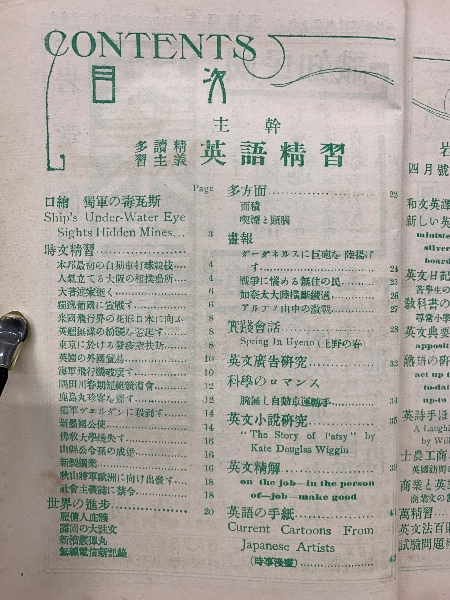 CONTENTS
目次
主幹
多讀精習主義 英語精習
Page
口繪 獨軍の毒瓦斯
Ship's Under-Water Eye
Sights Hidden Mines... 3
時文精習 4
本邦最初の自動車打球競技 4
人氣立てる大阪の相撲場所 4
大著述家逝く 6
獨逸葡國に宣戰す 6
米國飛行界の花形日本に向ふ 8
8
東京に於ける發疹窒扶斯 8
英國の外國貿易 10
海軍飛行機破壞す 10
隅田川春期短艇競漕會 12
鹿島丸珍客を齎す 12
獨軍ヴエルダンに殺到す 14
新墨國公使 14
佛敎大學燒失す 16
山縣公令孫の成婚 16
新製鋼業 16
秋山將軍歐洲に向け出發す 18
社會主義誌に禁令 18
世界の進步 20
屋傭人庇護
諸國の大註文
新榴霰彈丸
無線電信新記錄
多方面 22
面積
喫煙と頭腦
畫報
ダーダネルスに巨砲を陸揚げ
す 24
戰爭に惱める無住の民 25
加奈太大陸橫斷鐵道 26
アルプス山中の激戰 27
實踐會話 28
Spring In Uyeno (上野の春)
英文廣告硏究 32
科學のロマンス
腕無し自動車運轉手 34
英文小說硏究 35
"The Story of Patsy" by
Kate Douglas Wiggin
英文精解 39
on the job—in the person
of—job—make good
英語の手紙 41
Current Cartoons From
Japanese Artists
(時事漫畫) 42
四月號
和文英譯
新しい英
minister
silver
board
英文日記
敎科書の
英文典要
apposit
熟語の硏
act up t
to-dat
up-to
英詩手ほ
A Laughi
by Wil
士農工商
英國訪問
商業と英
商業文の書
萬精習
英文法百
試驗問題